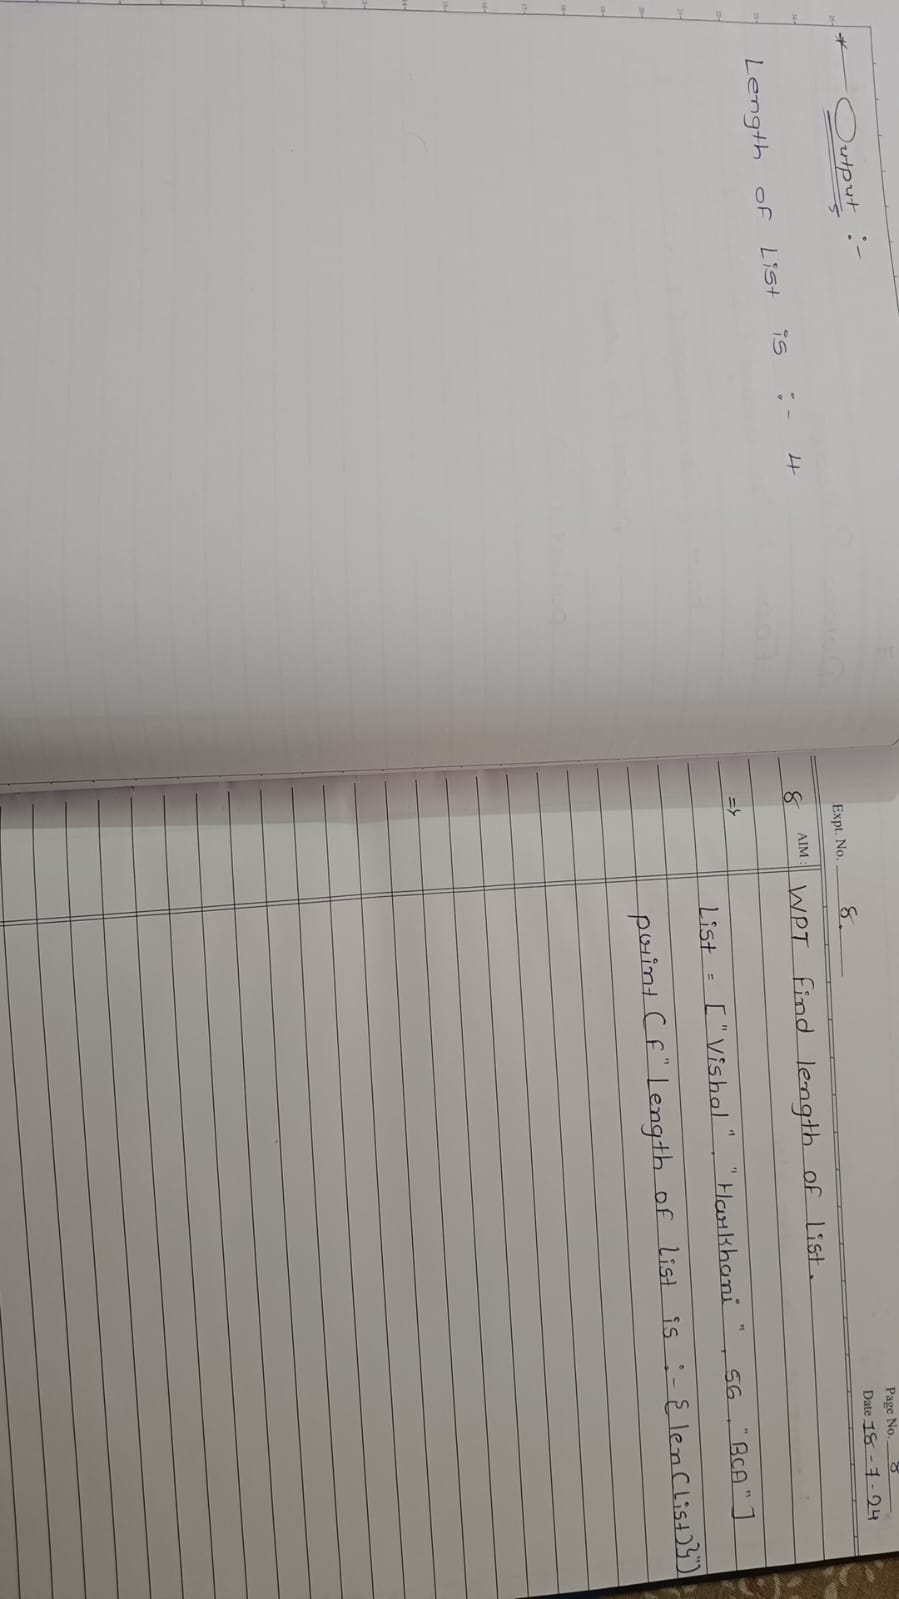 * Output :-
Length of List is :- 4
Page No. 8
Expt. No. 8.
Date 18-7-24
8 AIM : WPT find length of list.
=>
List = ["Vishal", "Harkhani", 56, "BCA"]
print(f"Length of list is :- {len(List)}")